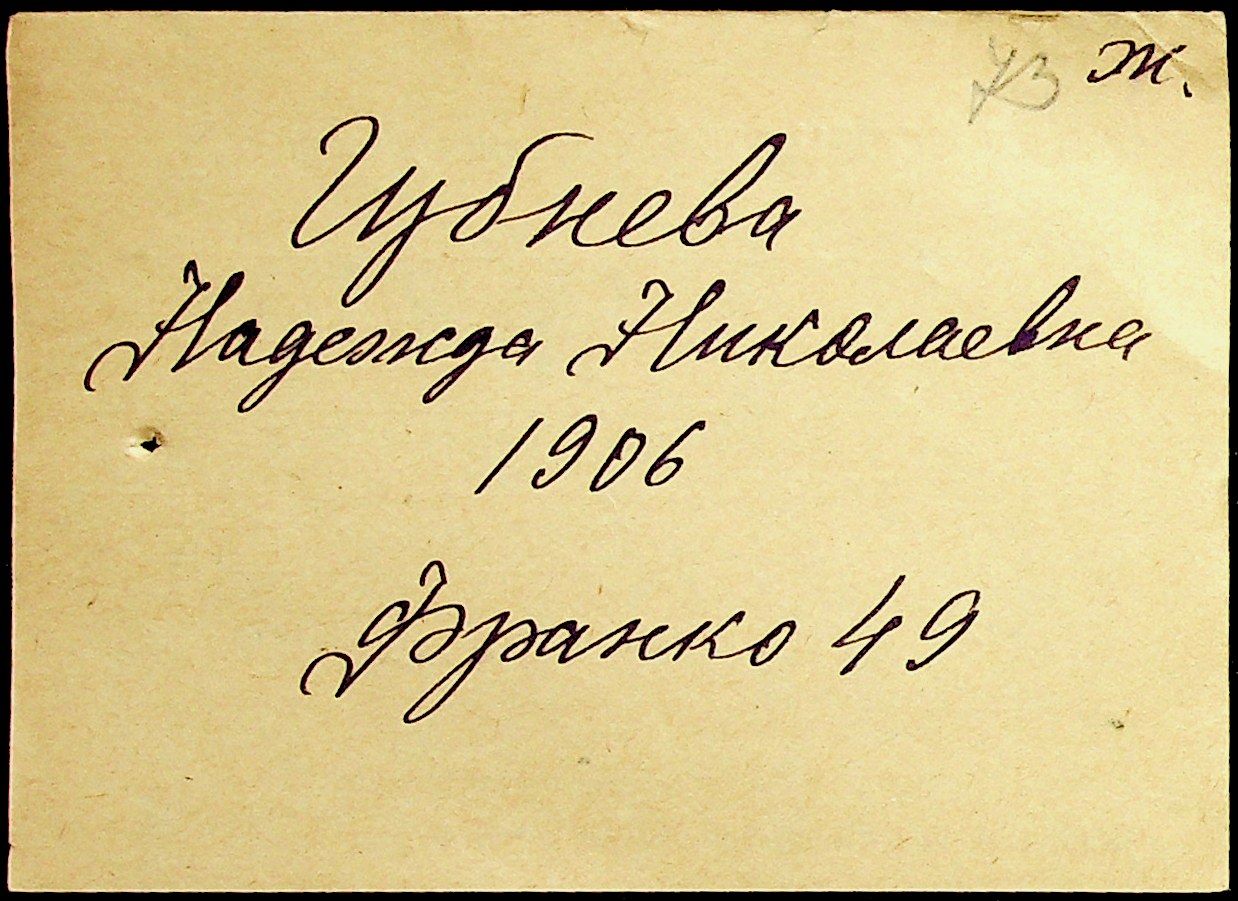 73 ж.
Губнева
Надежда Николаевна
1906
Франко 49